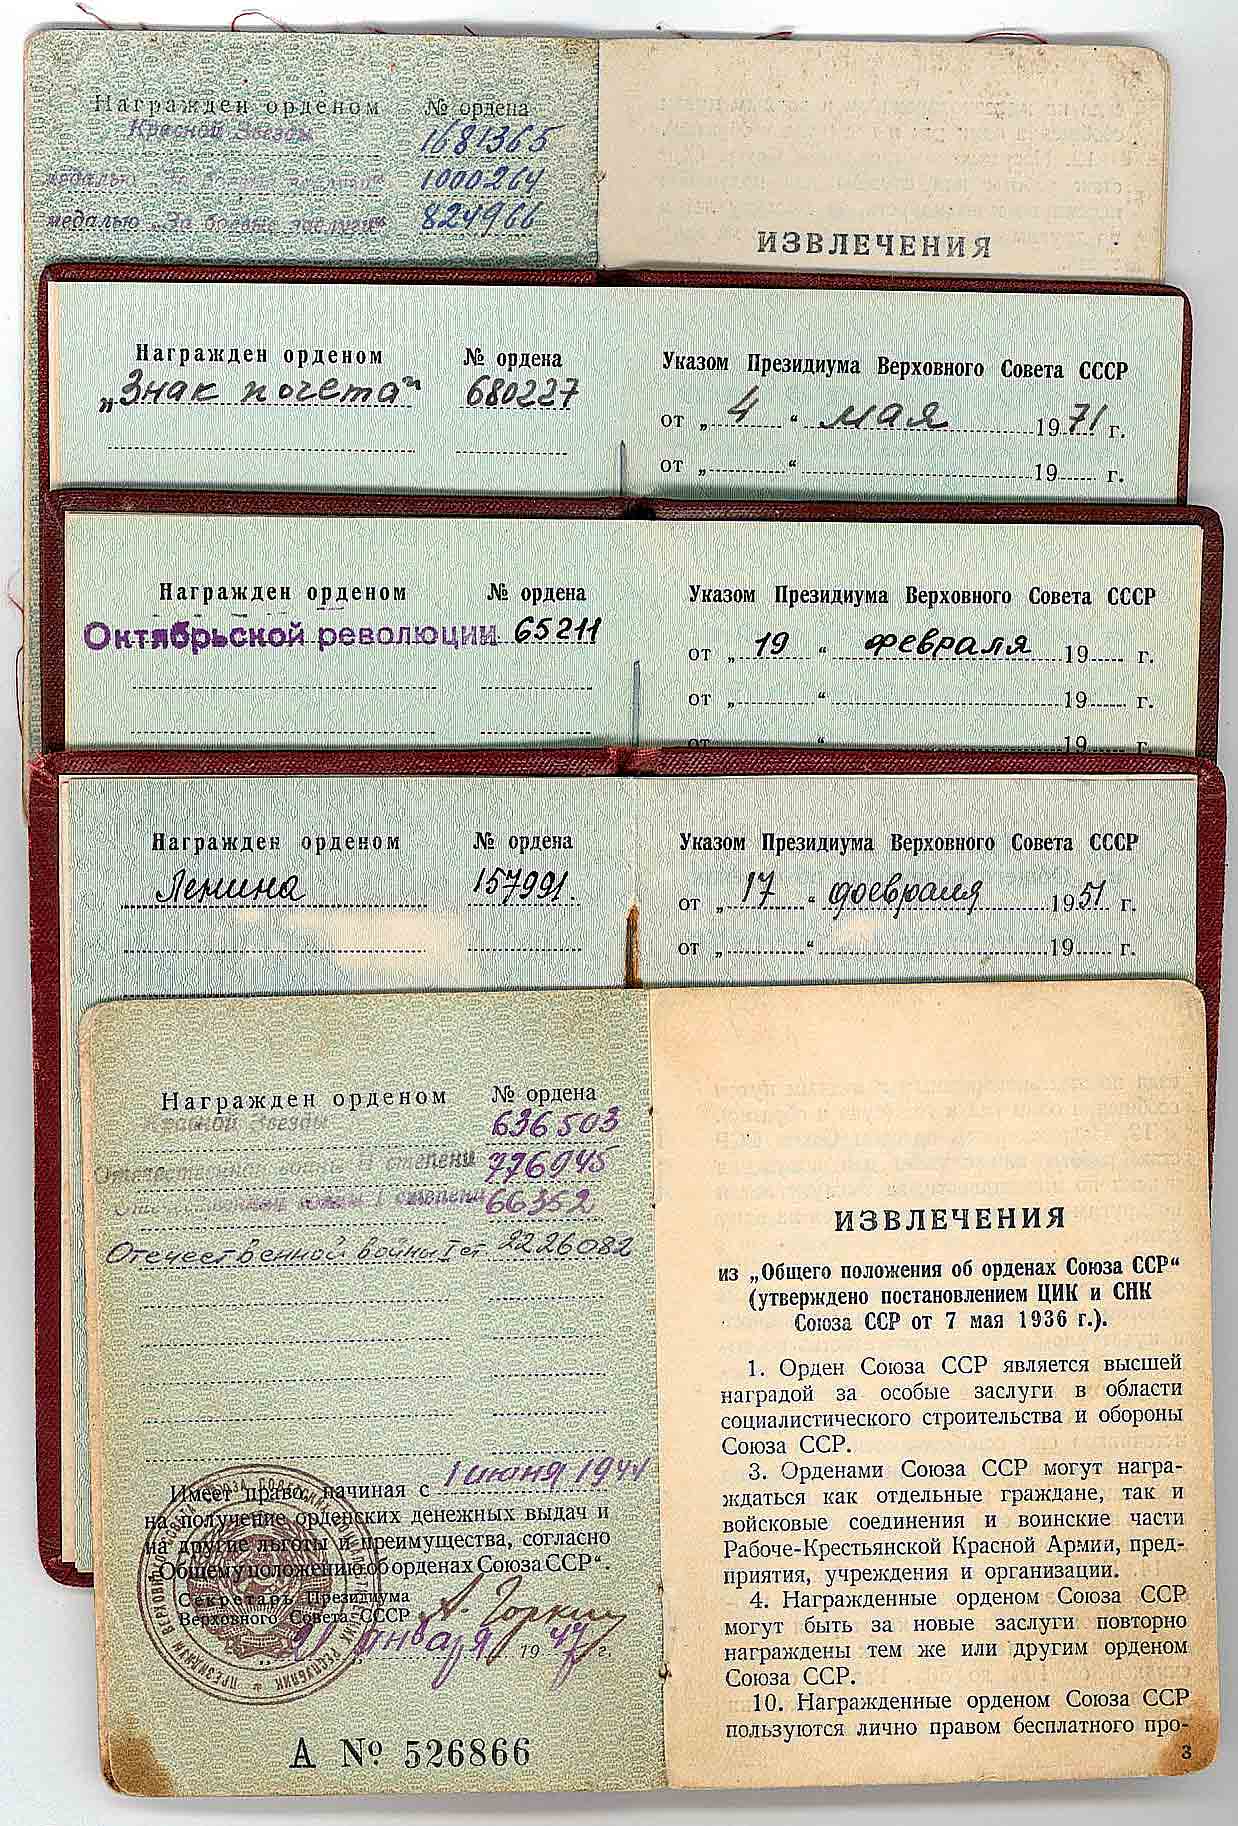 Награжден орденом № ордена
Красной Звезды 1681365
медалью „За боевые заслуги“ 1000264
медалью „За боевые заслуги“ 824966
ИЗВЛЕЧЕНИЯ
Награжден орденом № ордена
„Знак почета“ 680227
Указом Президиума Верховного Совета СССР
от „4“ мая 1971 г.
от „ “ 19 г.
Награжден орденом № ордена
Октябрьской революции 65211
Указом Президиума Верховного Совета СССР
от „19“ февраля 19 г.
от „ “ 19 г.
от „ “ 19 г.
Награжден орденом № ордена
Ленина 157991.
Указом Президиума Верховного Совета СССР
от „17“ февраля 1951 г.
от „ “ 19 г.
Награжден орденом № ордена
Красной Звезды 636503
Отечественной войны II степени 776945
Отечественной войны I степени 66352
Отечественной войны I ст 2226082
Имеет право, начиная с 1 июня 1944
на получение орденских денежных выдач и
на другие льготы и преимущества, согласно
„Общему положению об орденах Союза ССР“.
Секретарь Президиума
Верховного Совета СССР А. Горкин
21 января 1947 г.
А № 526866
ИЗВЛЕЧЕНИЯ
из „Общего положения об орденах Союза ССР“
(утверждено постановлением ЦИК и СНК
Союза ССР от 7 мая 1936 г.).
1. Орден Союза ССР является высшей
наградой за особые заслуги в области
социалистического строительства и обороны
Союза ССР.
3. Орденами Союза ССР могут награ-
ждаться как отдельные граждане, так и
войсковые соединения и воинские части
Рабоче-Крестьянской Красной Армии, пред-
приятия, учреждения и организации.
4. Награжденные орденом Союза ССР
могут быть за новые заслуги повторно
награждены тем же или другим орденом
Союза ССР.
10. Награжденные орденом Союза ССР
пользуются лично правом бесплатного про-
3